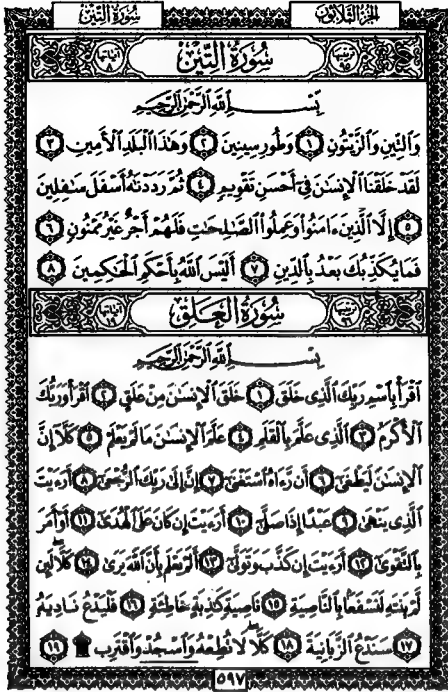 الجزء الثلاثون
سورة التين
ترتيبها ٩٥ سُورَةُ التِّينِ آياتها ٨
بِسْمِ اللَّهِ الرَّحْمَٰنِ الرَّحِيمِ
وَالتِّينِ وَالزَّيْتُونِ ١ وَطُورِ سِينِينَ ٢ وَهَٰذَا الْبَلَدِ الْأَمِينِ ٣
لَقَدْ خَلَقْنَا الْإِنسَٰنَ فِي أَحْسَنِ تَقْوِيمٍ ٤ ثُمَّ رَدَدْنَٰهُ أَسْفَلَ سَٰفِلِينَ
٥ إِلَّا الَّذِينَ ءَامَنُوا وَعَمِلُوا الصَّٰلِحَٰتِ فَلَهُمْ أَجْرٌ غَيْرُ مَمْنُونٍ ٦
فَمَا يُكَذِّبُكَ بَعْدُ بِالدِّينِ ٧ أَلَيْسَ اللَّهُ بِأَحْكَمِ الْحَٰكِمِينَ ٨
ترتيبها ٩٦ سُورَةُ الْعَلَقِ آياتها ١٩
بِسْمِ اللَّهِ الرَّحْمَٰنِ الرَّحِيمِ
اقْرَأْ بِاسْمِ رَبِّكَ الَّذِي خَلَقَ ١ خَلَقَ الْإِنسَٰنَ مِنْ عَلَقٍ ٢ اقْرَأْ وَرَبُّكَ
الْأَكْرَمُ ٣ الَّذِي عَلَّمَ بِالْقَلَمِ ٤ عَلَّمَ الْإِنسَٰنَ مَا لَمْ يَعْلَمْ ٥ كَلَّا إِنَّ
الْإِنسَٰنَ لَيَطْغَىٰ ٦ أَن رَّءَاهُ اسْتَغْنَىٰ ٧ إِنَّ إِلَىٰ رَبِّكَ الرُّجْعَىٰ ٨ أَرَءَيْتَ
الَّذِي يَنْهَىٰ ٩ عَبْدًا إِذَا صَلَّىٰ ١٠ أَرَءَيْتَ إِن كَانَ عَلَى الْهُدَىٰ ١١ أَوْ أَمَرَ
بِالتَّقْوَىٰ ١٢ أَرَءَيْتَ إِن كَذَّبَ وَتَوَلَّىٰ ١٣ أَلَمْ يَعْلَم بِأَنَّ اللَّهَ يَرَىٰ ١٤ كَلَّا لَئِن
لَّمْ يَنتَهِ لَنَسْفَعًا بِالنَّاصِيَةِ ١٥ نَاصِيَةٍ كَٰذِبَةٍ خَاطِئَةٍ ١٦ فَلْيَدْعُ نَادِيَهُ
١٧ سَنَدْعُ الزَّبَانِيَةَ ١٨ كَلَّا لَا تُطِعْهُ وَاسْجُدْ وَاقْتَرِب ۩ ١٩
٥٩٧